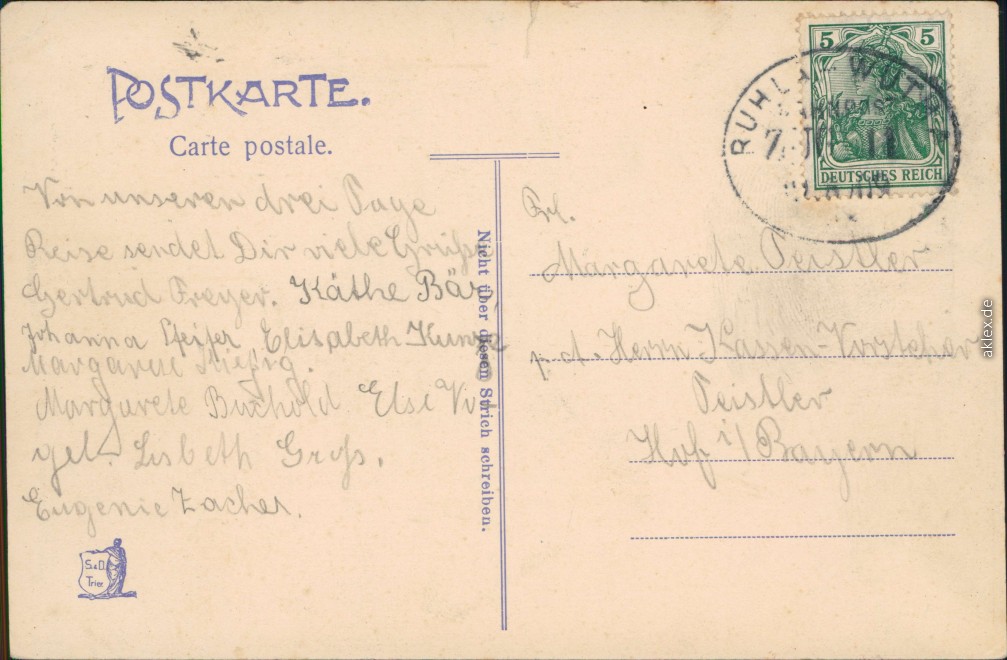 POSTKARTE.
Carte postale.
Von unseren drei Tage
Reise sendet Dir viele Grüße
Gertrud Freyer. Käthe Bär,
Johanna Pfeifer Elisabeth Kunze
Margarete
Margarete Buchold Else Vo
gel. Lisbeth Groß.
Eugenie Zacher.
S&D.
Trier
Nicht über diesen Strich schreiben.
5 5
DEUTSCHES REICH
RUHLA - WUTHA
BAHNPOST
11
ZUG
Frl.
Margarete Peistler
p. ad. Herrn Kassen-Vorsteher
Peistler
Hof i/Bayern
aklex.de